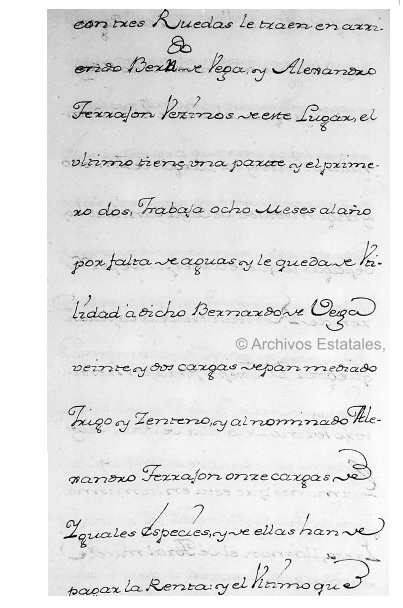 con tres Ruedas le traen en arri-
endo Bern.do de Vega, y Alexandro
Ferrason Vezinos de este Lugar, el
ultimo tiene una parte y el prime-
ro dos, Trabaja ocho Meses al año
por falta de aguas y le queda de Vti-
lidad a dicho Bernardo de Veiga
© Archivos Estatales,
veinte y dos cargas de pan mediado
Trigo y Zenteno, y al nominado Ale-
xandro Ferrason onze cargas de
Yguales Especies, y de ellas han de
pagar la Renta: y el Vltimo que